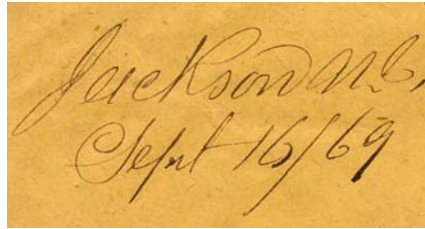 Jackson N.C.
Sept 16/69